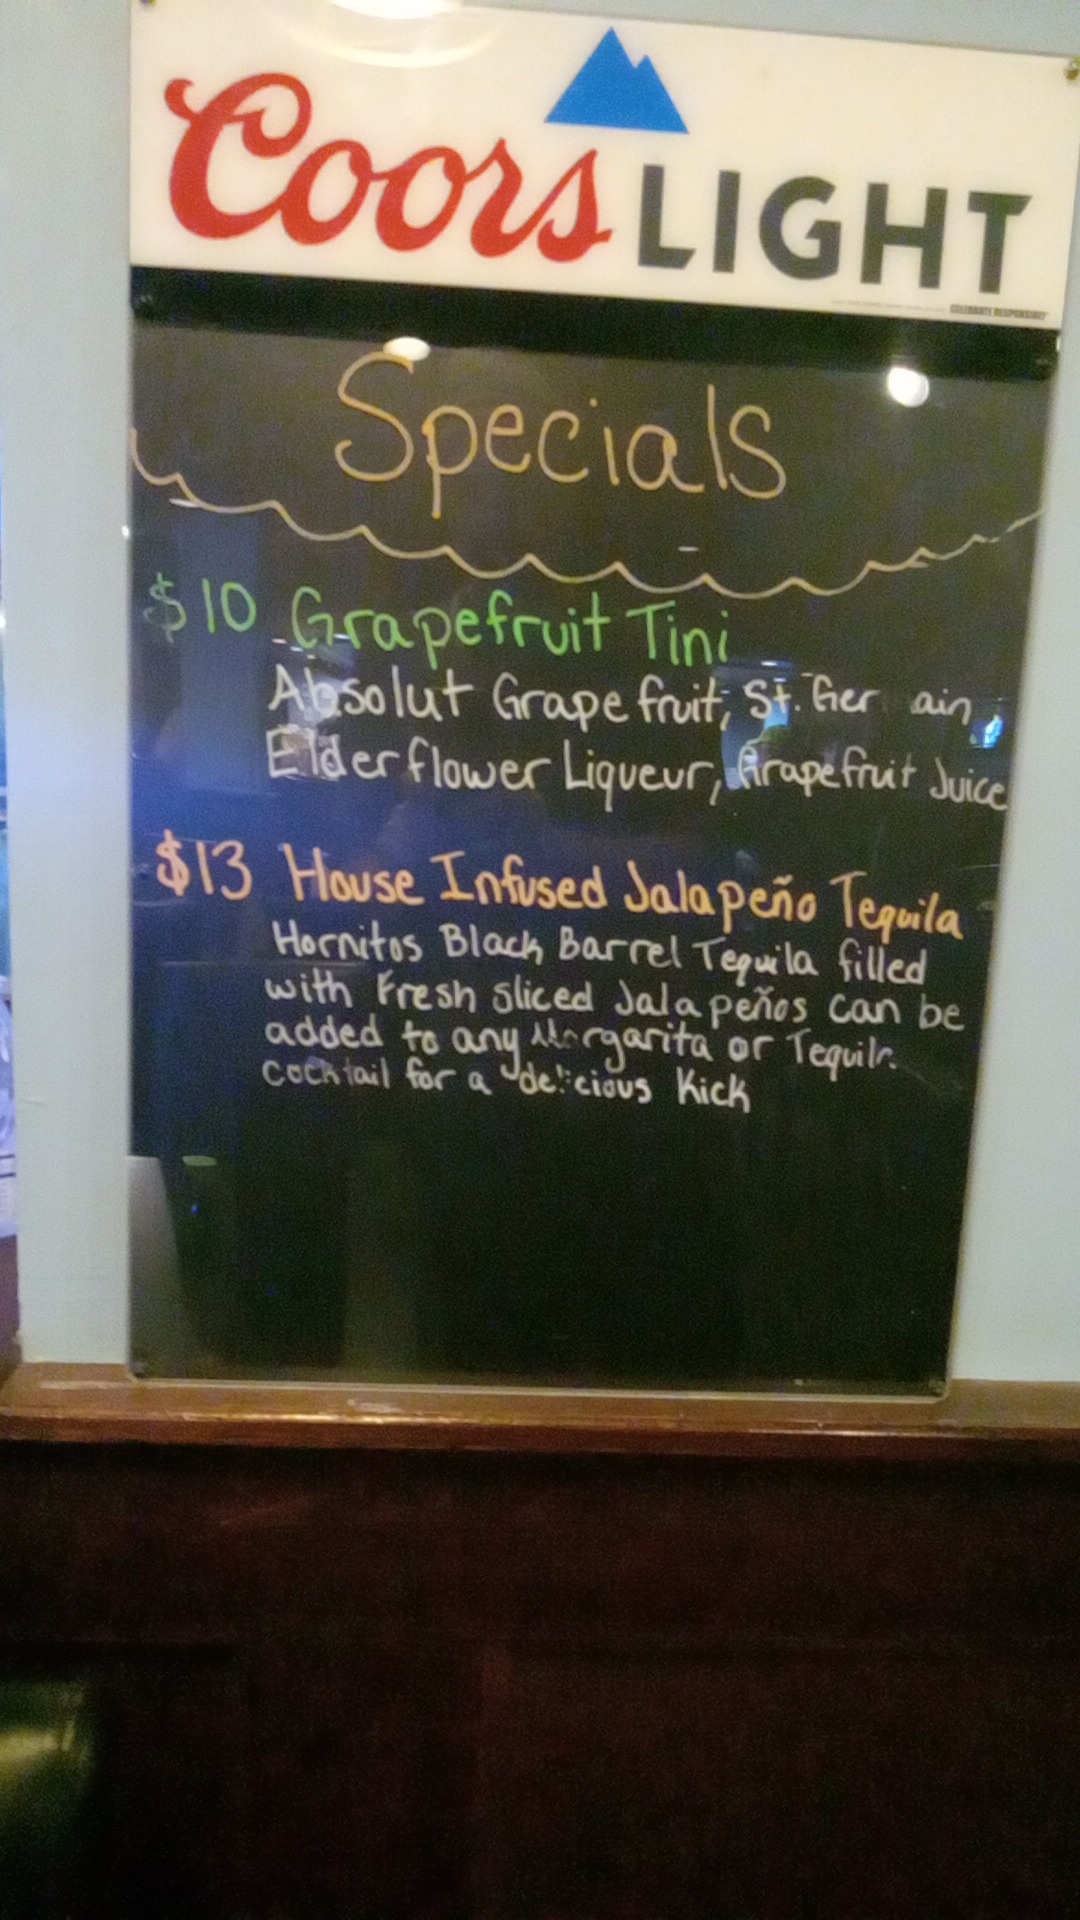 Coors LIGHT
CELEBRATE RESPONSIBLY
Specials
$10 Grapefruit Tini
Absolut Grapefruit, St. Ger ain
Elderflower Liqueur, Grapefruit Juice
$13 House Infused Jalapeño Tequila
Hornitos Black Barrel Tequila filled
with Fresh sliced Jalapeños can be
added to any Margarita or Tequila
cocktail for a delicious Kick